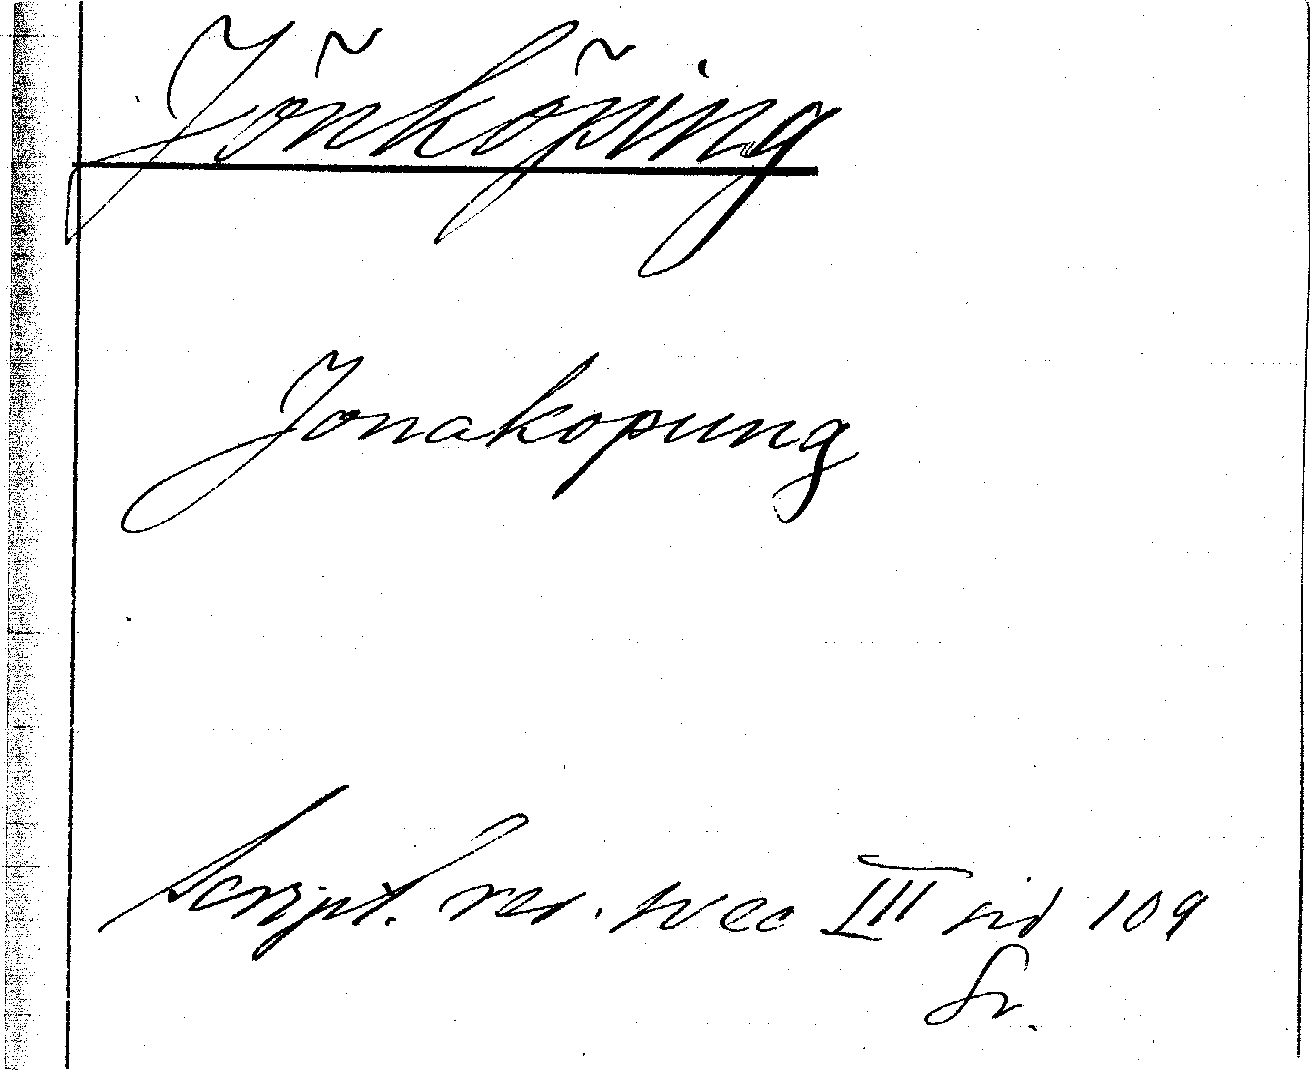 Jönköping
Jonakopung
Script. rer. svec III sid 109
Fr.